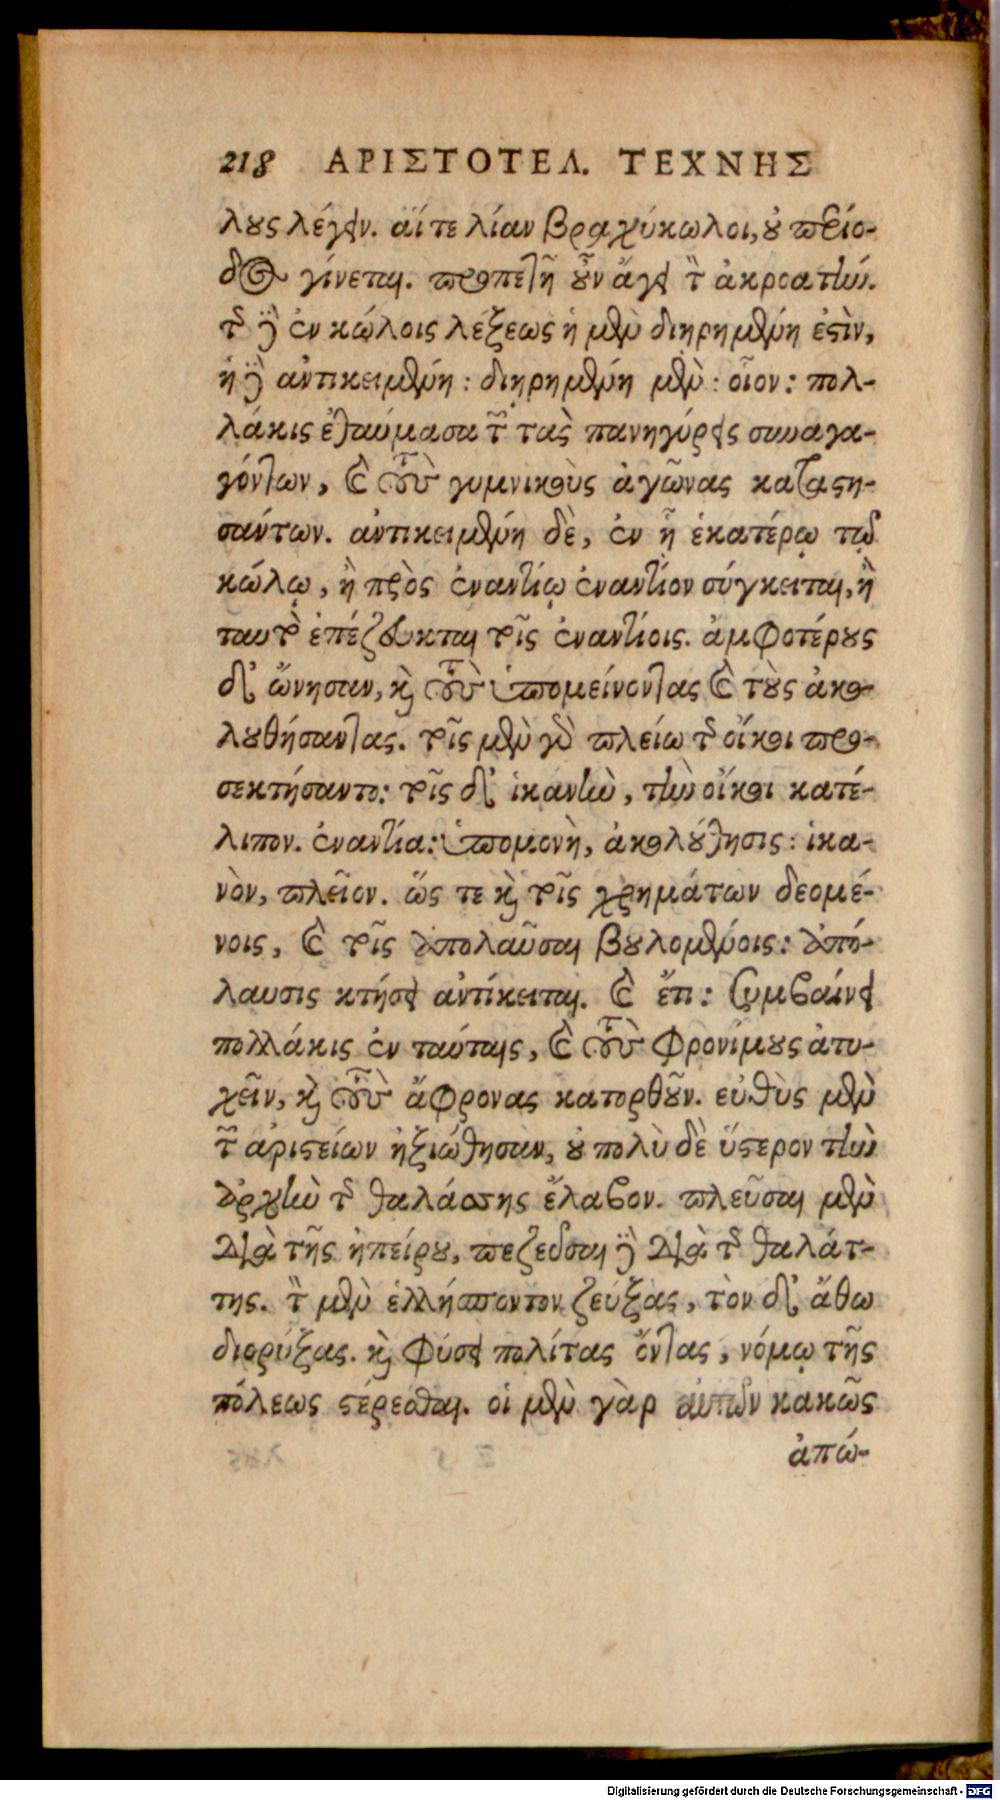 218 ΑΡΙΣΤΟΤΕΛ. ΤΕΧΝΗΣ
λους λέγειν. αἵ τε λίαν βραχύκωλοι, οὐ περίο-
δος γίνεται. προπετῆ οὖν ἄγει τὸν ἀκροατήν.
τῆς δὲ ἐν κώλοις λέξεως ἡ μὲν διῃρημένη ἐστὶν,
ἡ δὲ ἀντικειμένη: διῃρημένη μὲν: οἷον: πολ-
λάκις ἐθαύμασα τῶν τὰς πανηγύρεις συναγα-
γόντων, καὶ τοὺς γυμνικοὺς ἀγῶνας καταστη-
σάντων. ἀντικειμένη δὲ, ἐν ᾗ ἑκατέρῳ τῷ
κώλῳ, ἢ πρὸς ἐναντίῳ ἐναντίον σύγκειται, ἢ
ταυτὸ ἐπέζευκται τοῖς ἐναντίοις. ἀμφοτέρους
δ' ὤνησαν, καὶ τοὺς ὑπομείνοντας καὶ τοὺς ἀκο-
λουθήσαντας. τοῖς μὲν γὰρ πλείω τῆς οἴκοι προ-
σεκτήσαντο: τοῖς δ' ἱκανὴν, τὴν οἴκοι κατέ-
λιπον. ἐναντία: ὑπομονὴ, ἀκολούθησις: ἱκα-
νὸν, πλεῖον. ὥς τε καὶ τοῖς χρημάτων δεομέ-
νοις, καὶ τοῖς ἀπολαῦσαι βουλομένοις: ἀπό-
λαυσις κτήσει ἀντίκειται. καὶ ἔτι: συμβαίνει
πολλάκις ἐν ταύταις, καὶ τοὺς φρονίμους ἀτυ-
χεῖν, καὶ τοὺς ἄφρονας κατορθοῦν. εὐθὺς μὲν
τῶν ἀριστείων ἠξιώθησαν, οὐ πολὺ δὲ ὕστερον τὴν
ἀρχὴν τῆς θαλάσσης ἔλαβον. πλεῦσαι μὲν
διὰ τῆς ἠπείρου, πεζεῦσαι δὲ διὰ τῆς θαλάτ-
της. τὸν μὲν ἑλλήσποντον ζεύξας, τὸν δ' ἄθω
διορύξας. καὶ φύσει πολίτας ὄντας, νόμῳ τῆς
πόλεως στέρεσθαι. οἱ μὲν γὰρ αὐτῶν κακῶς
ἀπώ-
Digitalisierung gefördert durch die Deutsche Forschungsgemeinschaft - DFG